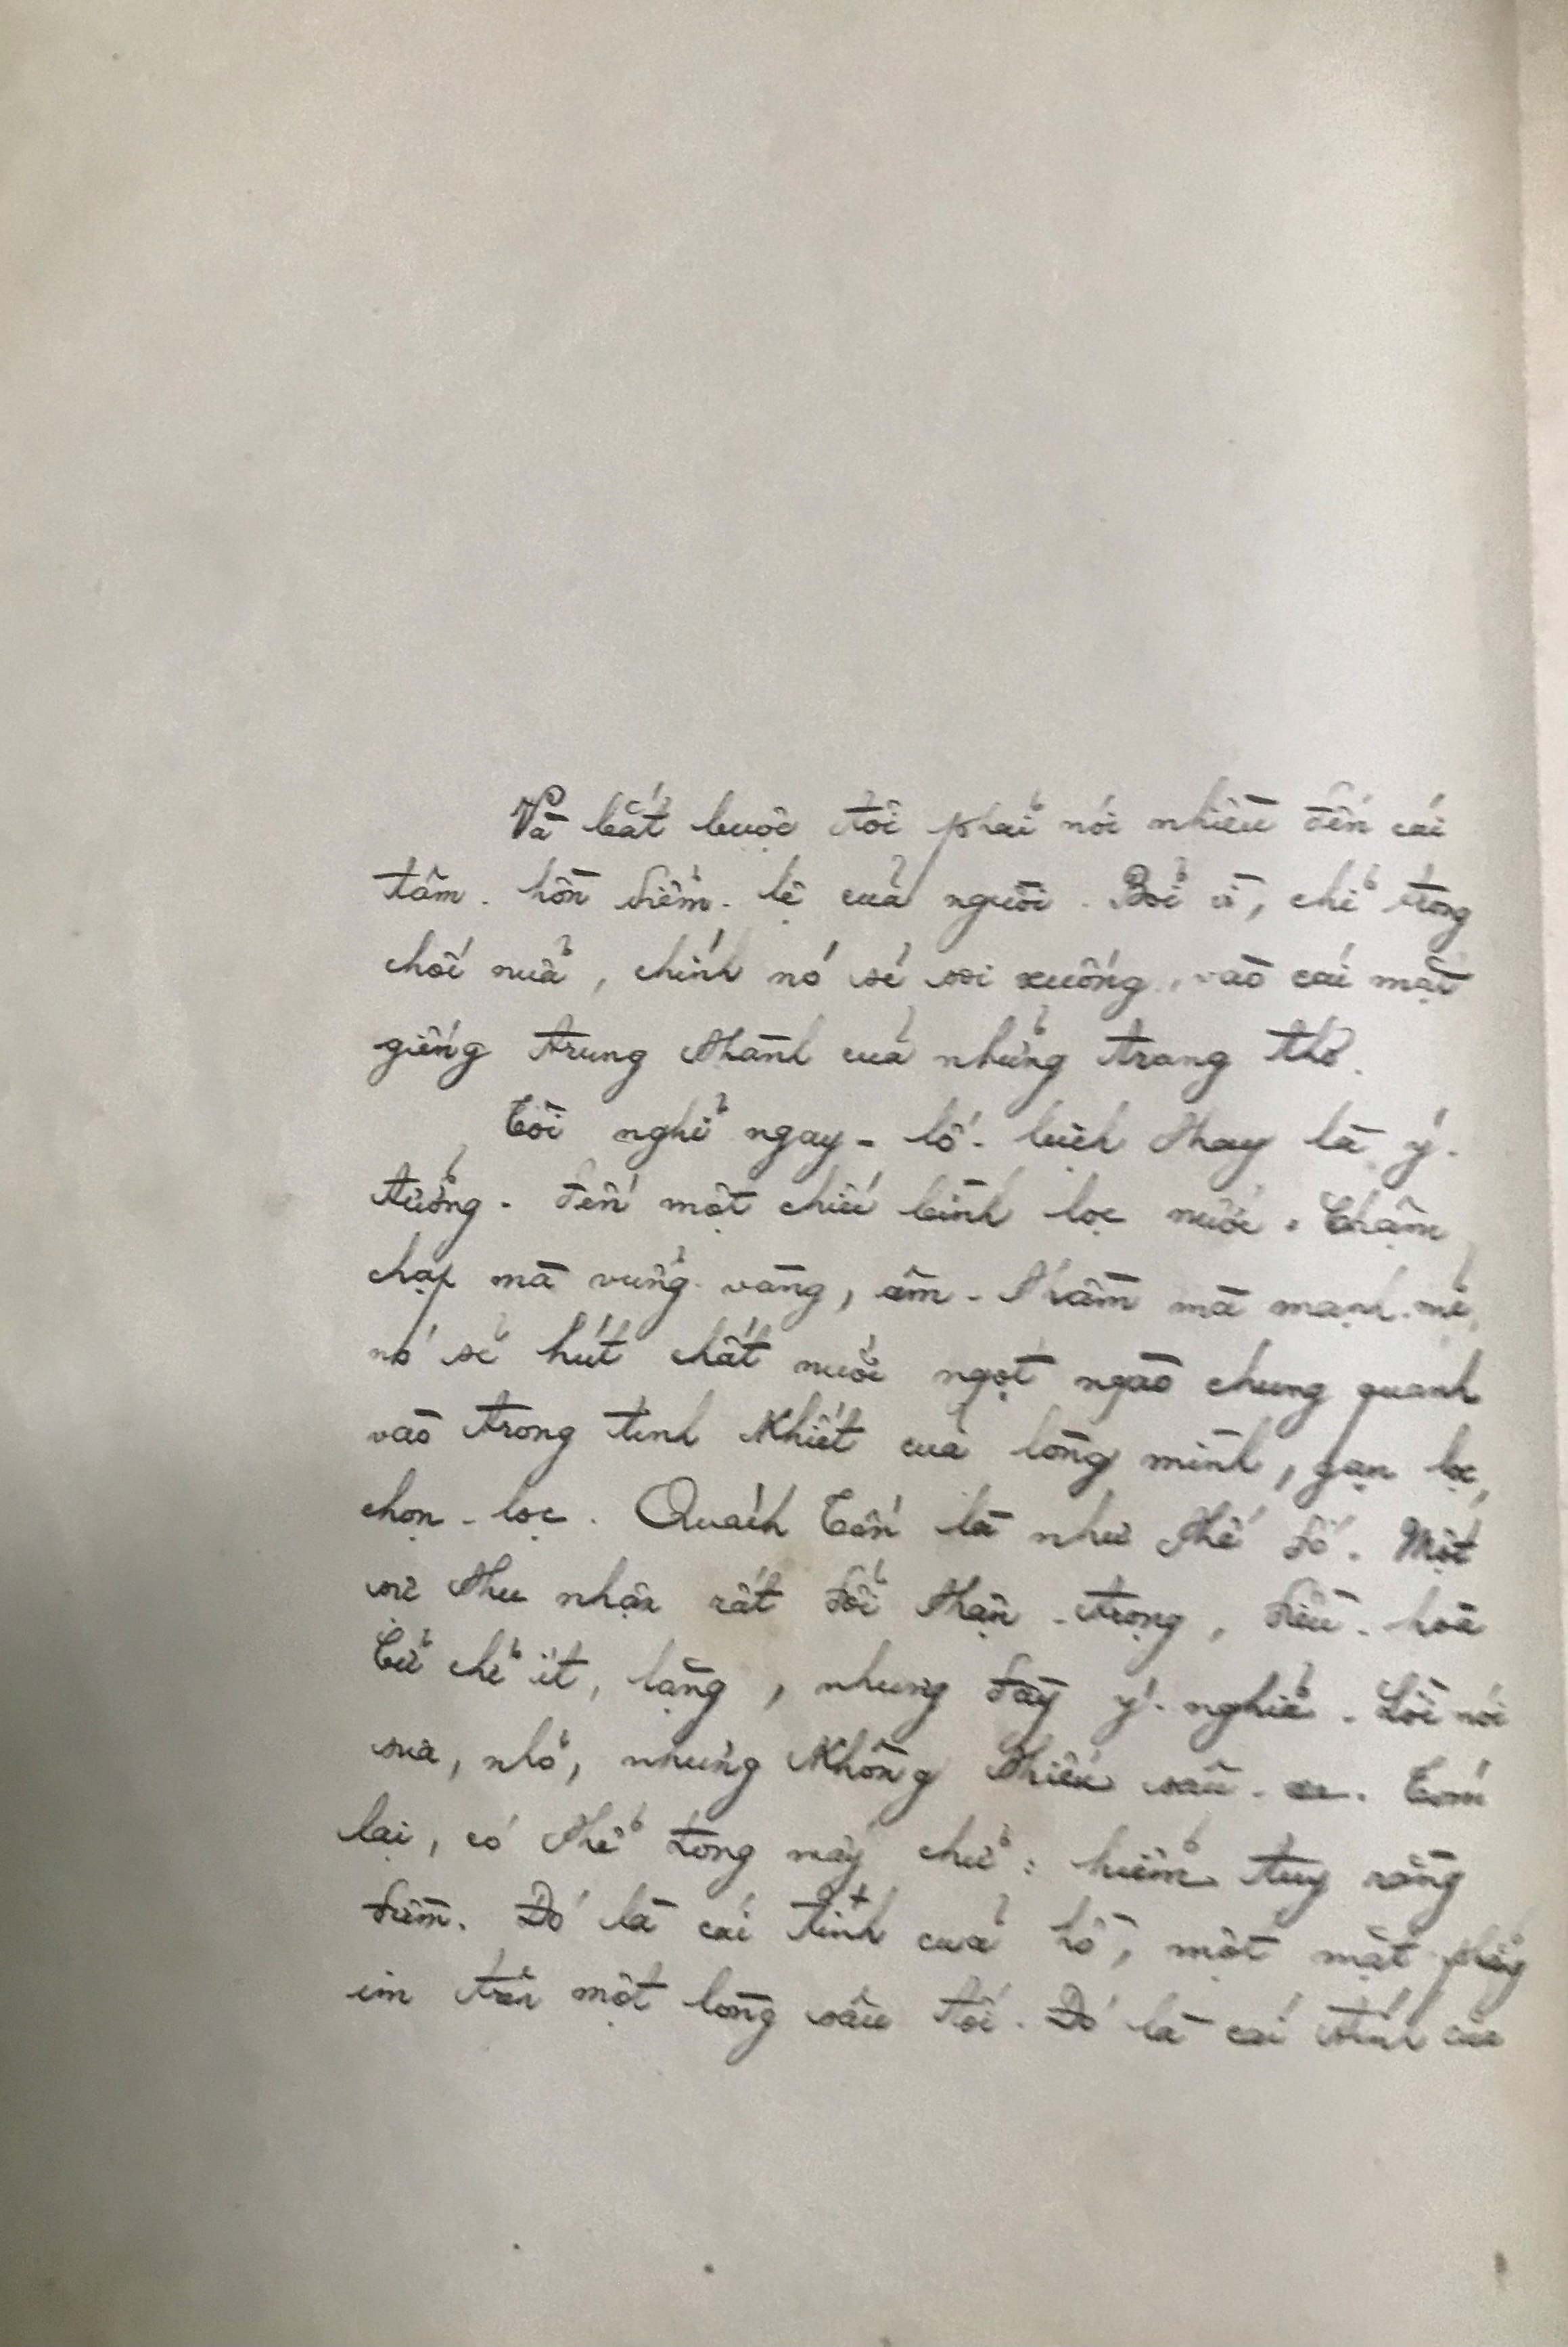 Và bắt buộc tôi phải nói nhiều đến cái
tâm-hồn diễm-lệ của người. Bởi vì, chỉ trong
chốc nữa, chính nó sẽ soi xuống vào cái mặt
giếng trung thành của những trang thơ.
Tôi nghĩ ngay - lố-bịch thay là ý-
tưởng - đến một chiếc bình lọc nước. Chậm
chạp mà vững-vàng, âm-thầm mà mạnh-mẽ,
nó sẽ hút chất nước ngọt ngào chung quanh
vào trong tinh khiết của lòng mình, gạn lọc,
chọn-lọc. Quách Tấn là như thế đó. Một
sự thu nhận rất đỗi thận-trọng, điều-hoà
Cử chỉ ít, lặng, nhưng đầy ý-nghĩa. Lời nói
sưa, nhỏ, nhưng không thiếu sâu-xa. Tóm
lại, có thể trong mấy chữ: hiểm tuy rằng
điềm. Đó là cái tính của hồ, một mặt phẳng
im trên một lòng sâu tối. Đó là cái tính của